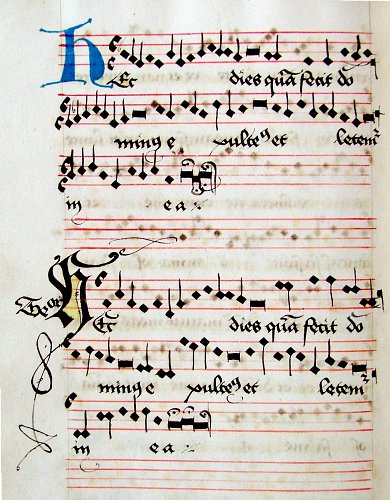 HEc dies quā fecit dō
minꝰ e xulteꝰ et letemꝛ
in e a
Tenor
HEc dies quā fecit dō
minꝰ e xulteꝰ et letemꝛ
in e a